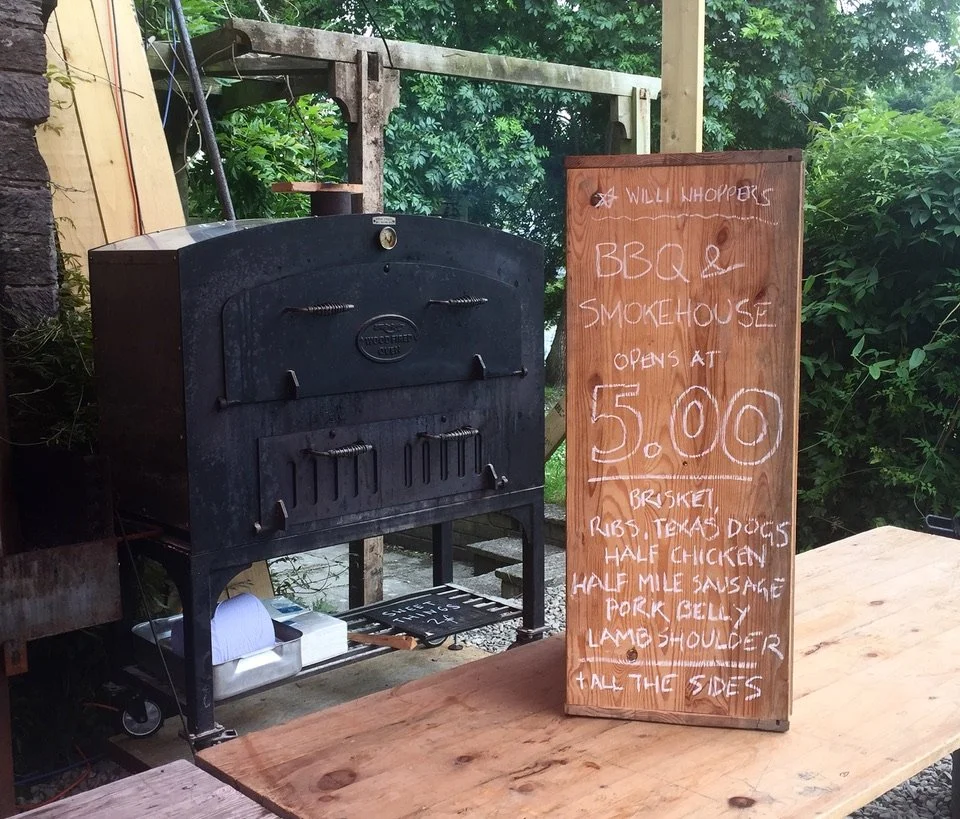 WILLI WHOPPERS
BBQ &
SMOKEHOUSE
OPENS AT
5.00
BRISKET,
RIBS, TEXAS DOGS
HALF CHICKEN
HALF MILE SAUSAGE
PORK BELLY
LAMB SHOULDER
+ ALL THE SIDES
WOOD FIRED
OVEN
SWEET